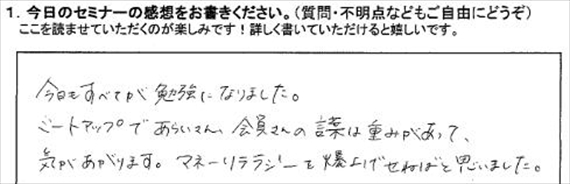 1. 今日のセミナーの感想をお書きください。（質問・不明点などもご自由にどうぞ）
ここを読ませていただくのが楽しみです！詳しく書いていただけると嬉しいです。
今日もすべてが勉強になりました。
ミートアップであらいさん、会員さんの言葉は重みがあって、
気があがります。マネーリテラシーを爆上げせねばと思いました。